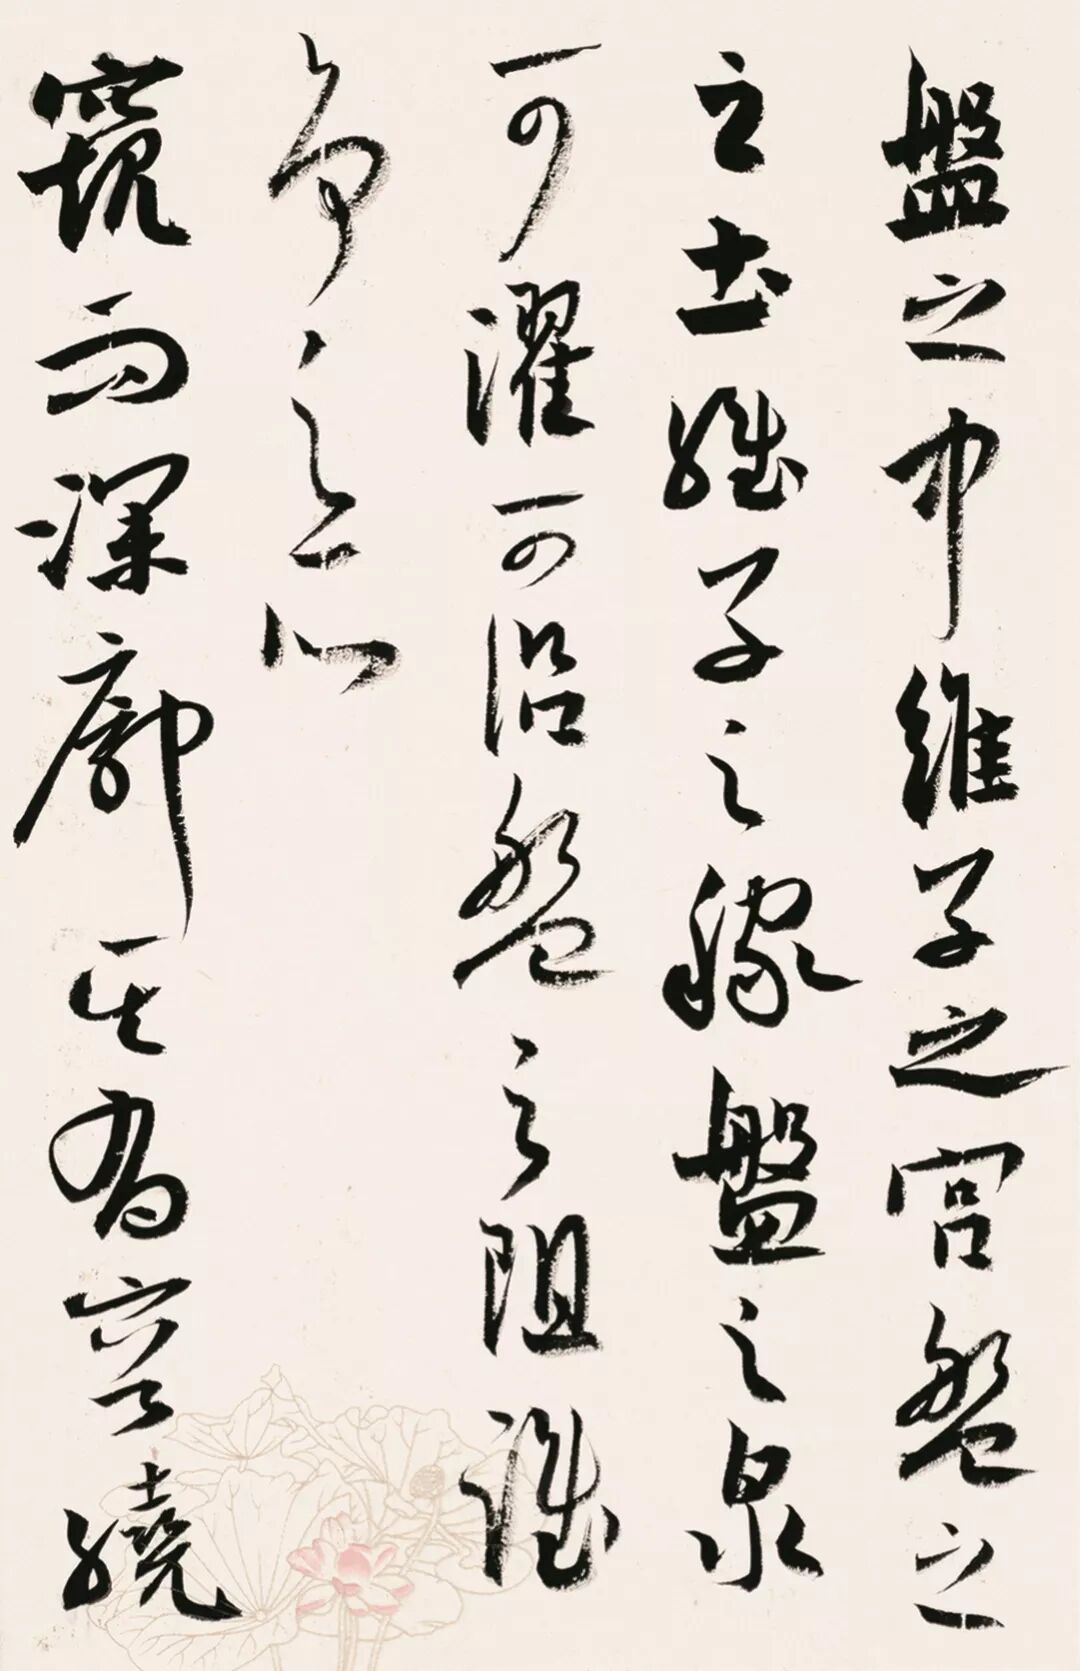 盤之中維子之宮盤之
之土維子之稼盤之泉
可濯可沿盤之阻誰
爭之所
窺而深廓其有容繞